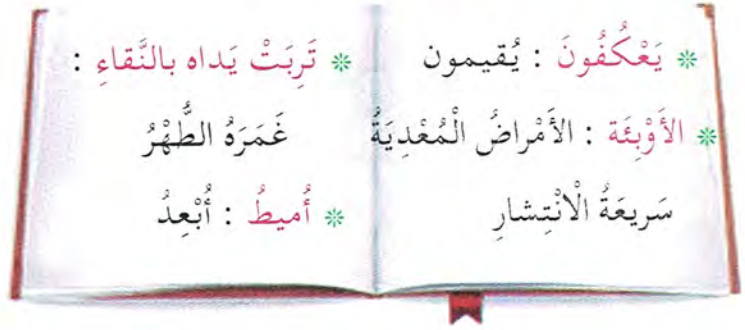 ❊ يَعْكُفُونَ : يُقيمون
❊ الأَوْبِئَة : الأَمْراضُ الْمُعْدِيَةُ
سَريعَةُ الْانْتِشارِ
❊ تَرِبَتْ يَداه بالنَّقاءِ :
غَمَرَهُ الطُّهْرُ
❊ أُميطُ : أُبْعِدُ